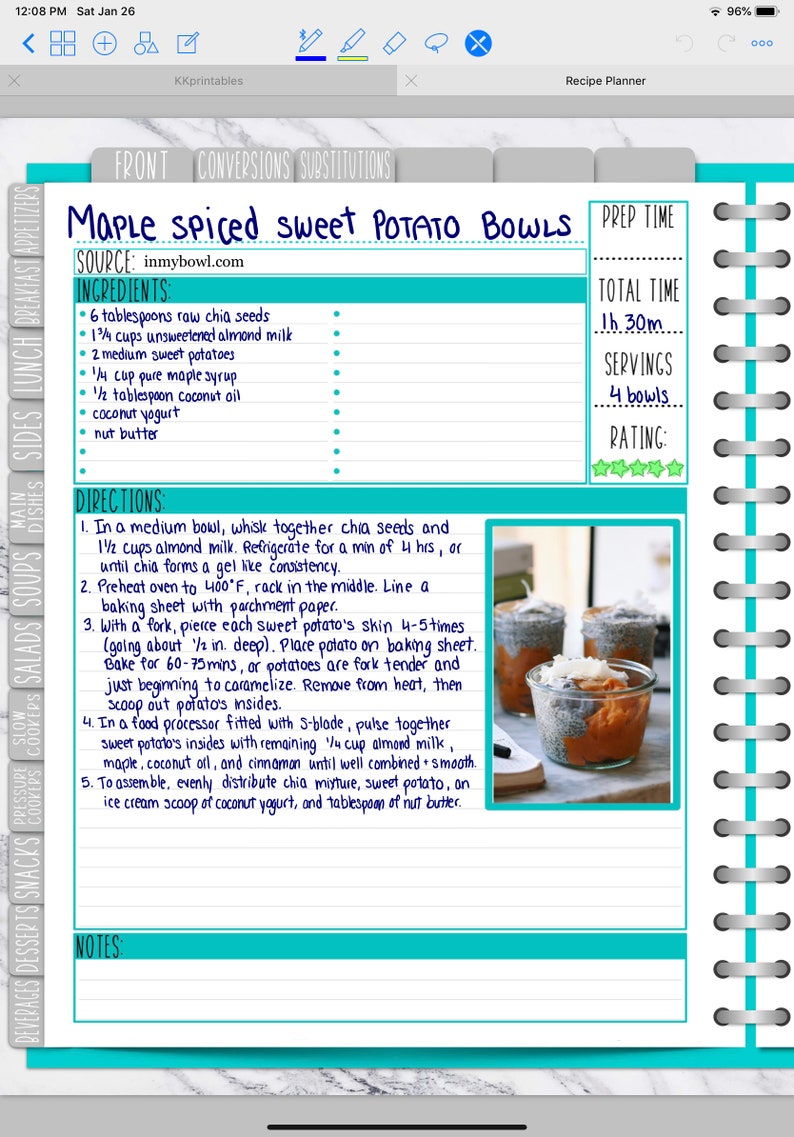 12:08 PM Sat Jan 26
96%
KKprintables
Recipe Planner
FRONT
CONVERSIONS
SUBSTITUTIONS
APPETIZERS
BREAKFAST
LUNCH
SIDES
MAIN
DISHES
SOUPS
SALADS
SLOW
COOKERS
PRESSURE
COOKERS
SNACKS
DESSERTS
BEVERAGES
MAPLE SPICED SWEET POTATO BOWLS
SOURCE: inmybowl.com
INGREDIENTS:
6 tablespoons raw chia seeds
1 3/4 cups unsweetened almond milk
2 medium sweet potatoes
1/4 cup pure maple syrup
1/2 tablespoon coconut oil
coconut yogurt
nut butter
PREP TIME
TOTAL TIME
1h 30m
SERVINGS
4 bowls
RATING:
DIRECTIONS:
1. In a medium bowl, whisk together chia seeds and
1 1/2 cups almond milk. Refrigerate for a min of 4 hrs, or
until chia forms a gel like consistency.
2. Preheat oven to 400°F, rack in the middle. Line a
baking sheet with parchment paper.
3. With a fork, pierce each sweet potato's skin 4-5 times
(going about 1/2 in. deep). Place potato on baking sheet.
Bake for 60-75 mins, or potatoes are fork tender and
just beginning to caramelize. Remove from heat, then
scoop out potato's insides.
4. In a food processor fitted with S-blade, pulse together
sweet potato's insides with remaining 1/4 cup almond milk,
maple, coconut oil, and cinnamon until well combined + smooth.
5. To assemble, evenly distribute chia mixture, sweet potato, an
ice cream scoop of coconut yogurt, and tablespoon of nut butter.
NOTES: